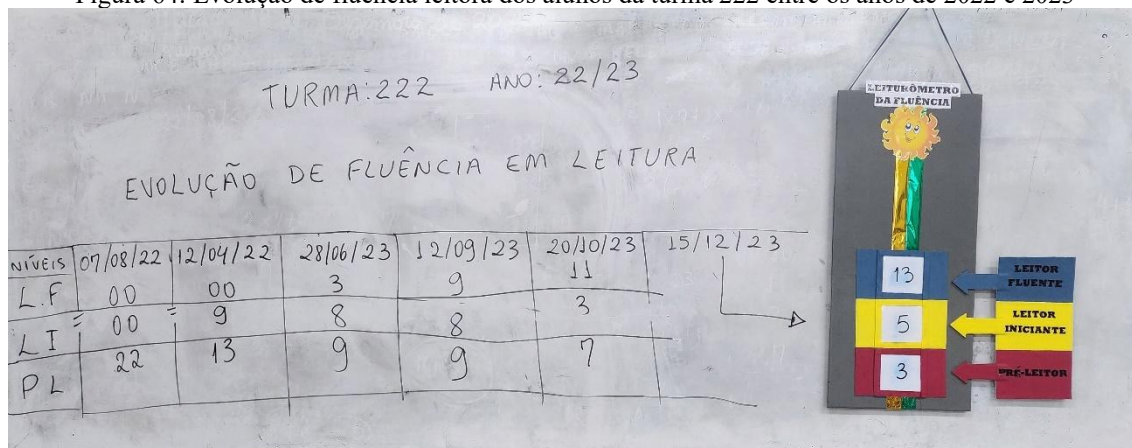 Figura 64: Evolução de fluência leitora dos alunos da turma 222 entre os anos de 2022 e 2023
TURMA: 222 ANO: 22/23
EVOLUÇÃO DE FLUÊNCIA EM LEITURA
NÍVEIS 07/08/22 12/04/22 28/06/23 12/09/23 20/10/23 15/12/23
L.F 00 00 3 9 11
LI 00 9 8 8 3
PL 22 13 9 9 7
LEITURÔMETRO
DA FLUÊNCIA
13
5
3
LEITOR
FLUENTE
LEITOR
INICIANTE
PRÉ-LEITOR